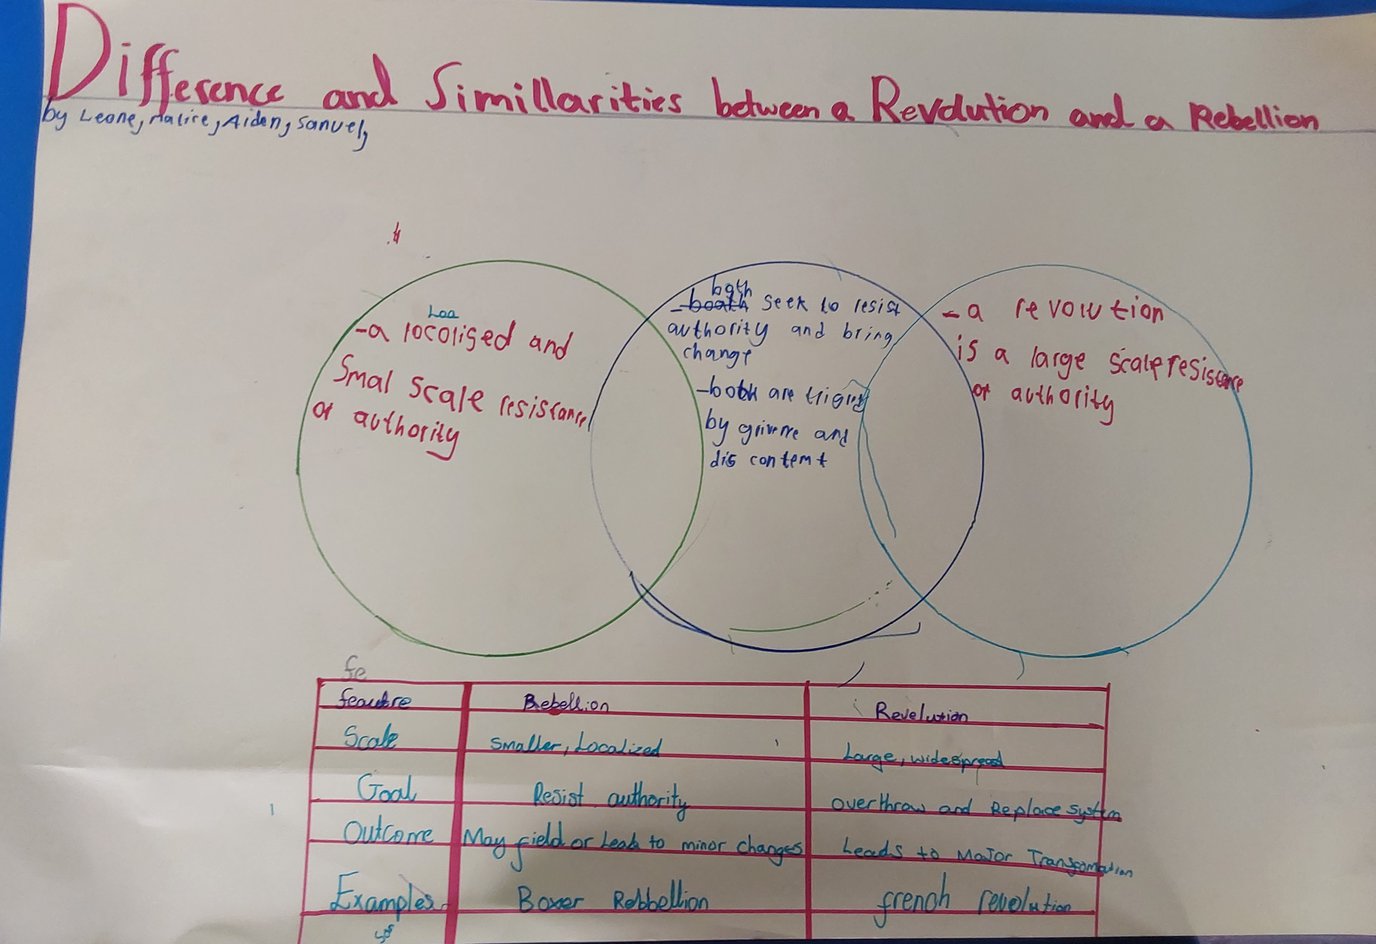 Difference and Simillarities between a Revolution and a Rebellion
by Leone, Aiden,
Loa
-a locolised and
Smal Scale resistance
of authority
both
-booth seek to resist
authority and bring
change
-booth are
by and
dis content
-a revolution
is a large scale resistance
of authority
fe
Rebellion
Revelution
Scale
Smaller, Localized
Large, widespread
Goal
Resist authority
overthrow and Replace system
Outcome
May field or Leads to minor changes
Leads to Major
Examples
Boxer Rebbellion
french revolution